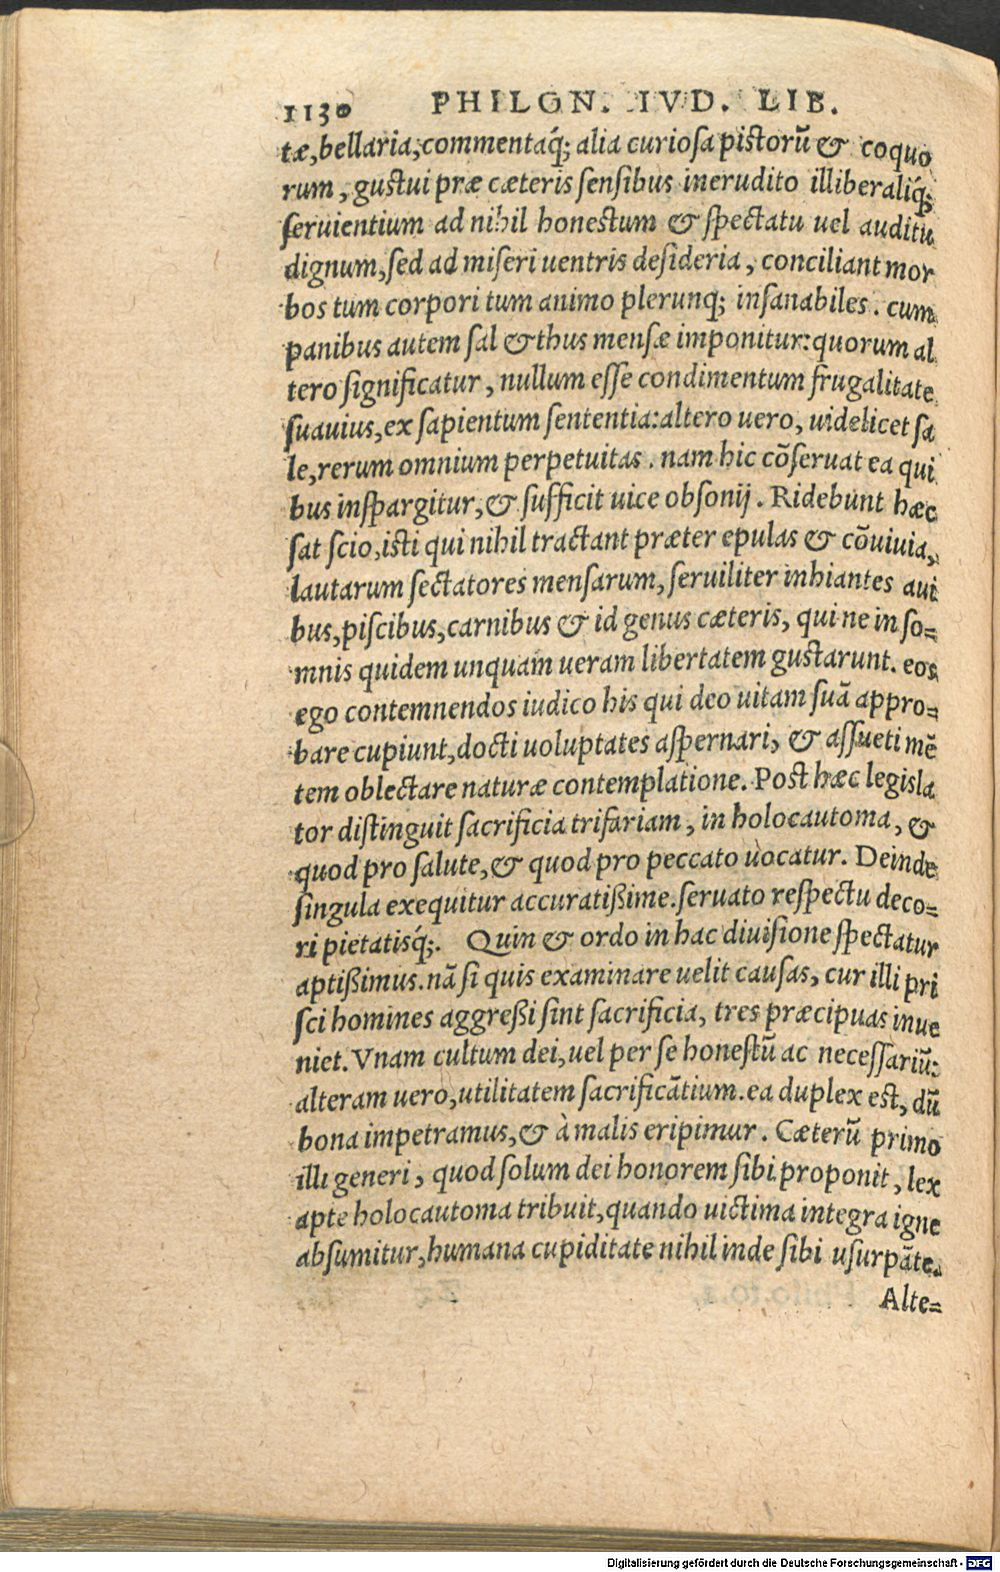 1130 PHILON. IVD. LIB.
tæ, bellaria, commentaq́; alia curiosa pistorũ & coquo
rum, gustui præ cæteris sensibus inerudito illiberaliq́;
seruientium ad nihil honestum & spectatu uel auditu
dignum, sed ad miseri uentris desideria, conciliant mor
bos tum corpori tum animo plerunq; insanabiles. cum
panibus autem sal & thus mensæ imponitur: quorum al
tero significatur, nullum esse condimentum frugalitate
suauius, ex sapientum sententia: altero uero, uidelicet sa
le, rerum omnium perpetuitas. nam hic cõseruat ea qui
bus inspargitur, & sufficit uice obsonij. Ridebunt hæc
sat scio, isti qui nihil tractant præter epulas & cõuiuia,
lautarum sectatores mensarum, seruiliter inhiantes aui
bus, piscibus, carnibus & id genus cæteris, qui ne in so=
mnis quidem unquam ueram libertatem gustarunt. eos
ego contemnendos iudico his qui deo uitam suã appro=
bare cupiunt, docti uoluptates aspernari, & assueti mẽ
tem oblectare naturæ contemplatione. Post hæc legisla
tor distinguit sacrificia trifariam, in holocautoma, &
quod pro salute, & quod pro peccato uocatur. Deinde
singula exequitur accuratißime. seruato respectu deco=
ri pietatisq́;. Quin & ordo in hac diuisione spectatur
aptißimus. nã si quis examinare uelit causas, cur illi pri
sci homines aggreßi sint sacrificia, tres præcipuas inue
niet. Vnam cultum dei, uel per se honestũ ac necessariũ:
alteram uero, utilitatem sacrificãtium. ea duplex est, dũ
bona impetramus, & à malis eripimur. Cæterũ primo
illi generi, quod solum dei honorem sibi proponit, lex
apte holocautoma tribuit, quando uictima integra igne
absumitur, humana cupiditate nihil inde sibi usurpãte.
Alte=
Digitalisierung gefördert durch die Deutsche Forschungsgemeinschaft - DFG